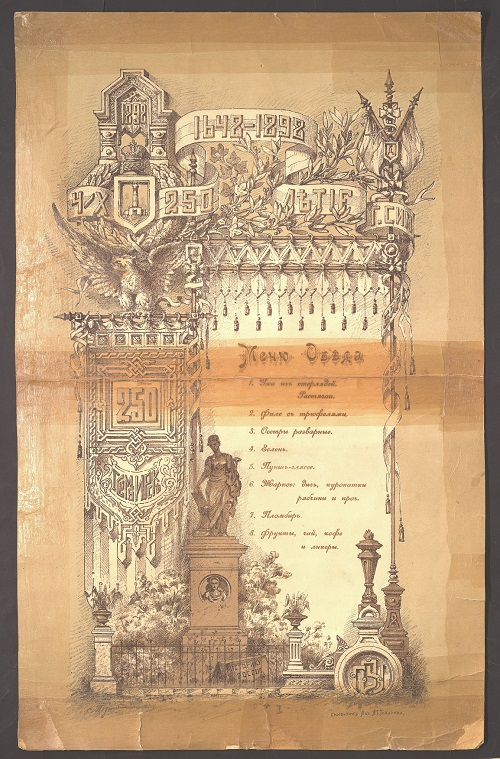 1898
1648-1898
Ч Х 250 ЛѢТІЕ Г. СИМ
Меню Обѣда
1. Уха изъ стерлядей.
Растегаи.
2. Филе съ трюфелями.
3. Осетры разварные.
4. Зелень.
5. Пуншъ-гляссе.
6. Жаркое: Дичь, куропатки
рябчики и проч.
7. Пломбиръ.
8. Фрукты, чай, кофе
и ликеры.
250